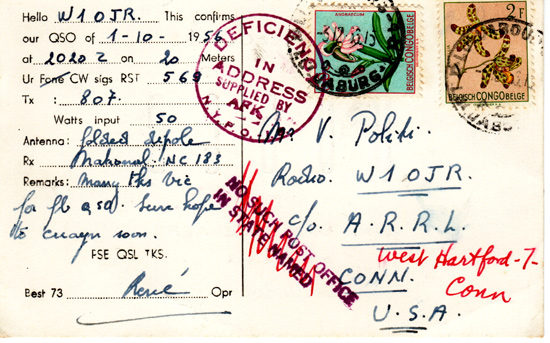 Hello W1OJR. This confirms
our QSO of 1-10-1956
at 2020 z on 20 Meters
Ur Fone CW sigs RST 569
Tx : 807.
Watts input 50
Antenna: folded dipole
Rx National NC 183
Remarks: Many tks Vic
for fb qso. Sure hope
to cuagn soon.
PSE QSL TKS.
Best 73 René Opr
DEFICIENCY
IN
ADDRESS
SUPPLIED BY
N.Y.P.O.
ANGRAECUM
BELGISCH CONGO BELGE
2F
BELGISCH CONGO BELGE
V. Politi.
Radio. W1OJR.
c/o A.R.R.L.
West Hartford-7-
Conn
CONN.
U.S.A.
NO SUCH POST OFFICE
IN STATE NAMED